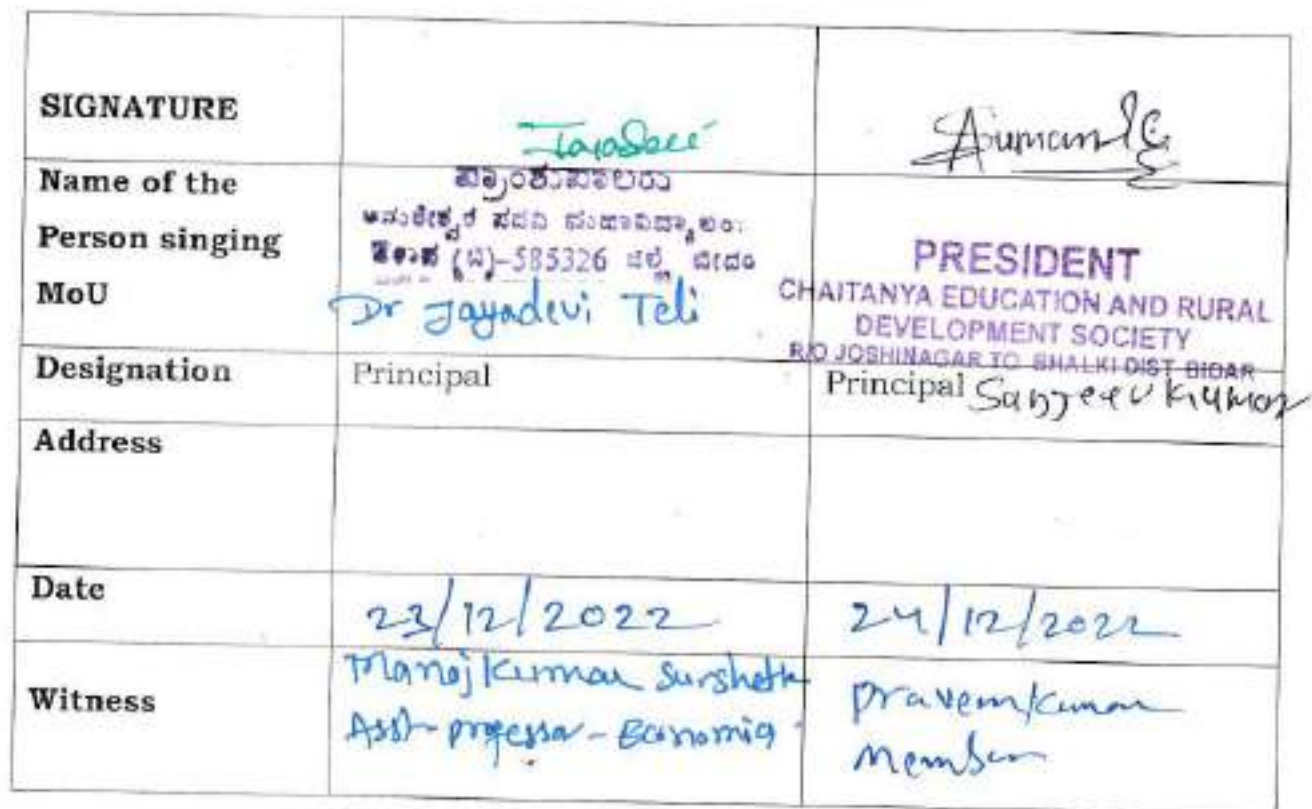 SIGNATURE
Name of the
Person singing
MoU
ಪ್ರಾಂಶುಪಾಲರು
ಪದವಿ ಮಹಾವಿದ್ಯಾಲಯ
(ಬಿ)-585326 ಜಿಲ್ಲೆ ಬೀದರ
Dr Jayadevi Teli
PRESIDENT
CHAITANYA EDUCATION AND RURAL
DEVELOPMENT SOCIETY
R/O JOSHINAGAR TO BHALKI DIST BIDAR
Designation
Principal
Principal Sanjeevkumar
Address
Date
23/12/2022
24/12/2022
Witness
Manojkumar Surshette
Asst-professor-Economics
Praveenkumar
Member